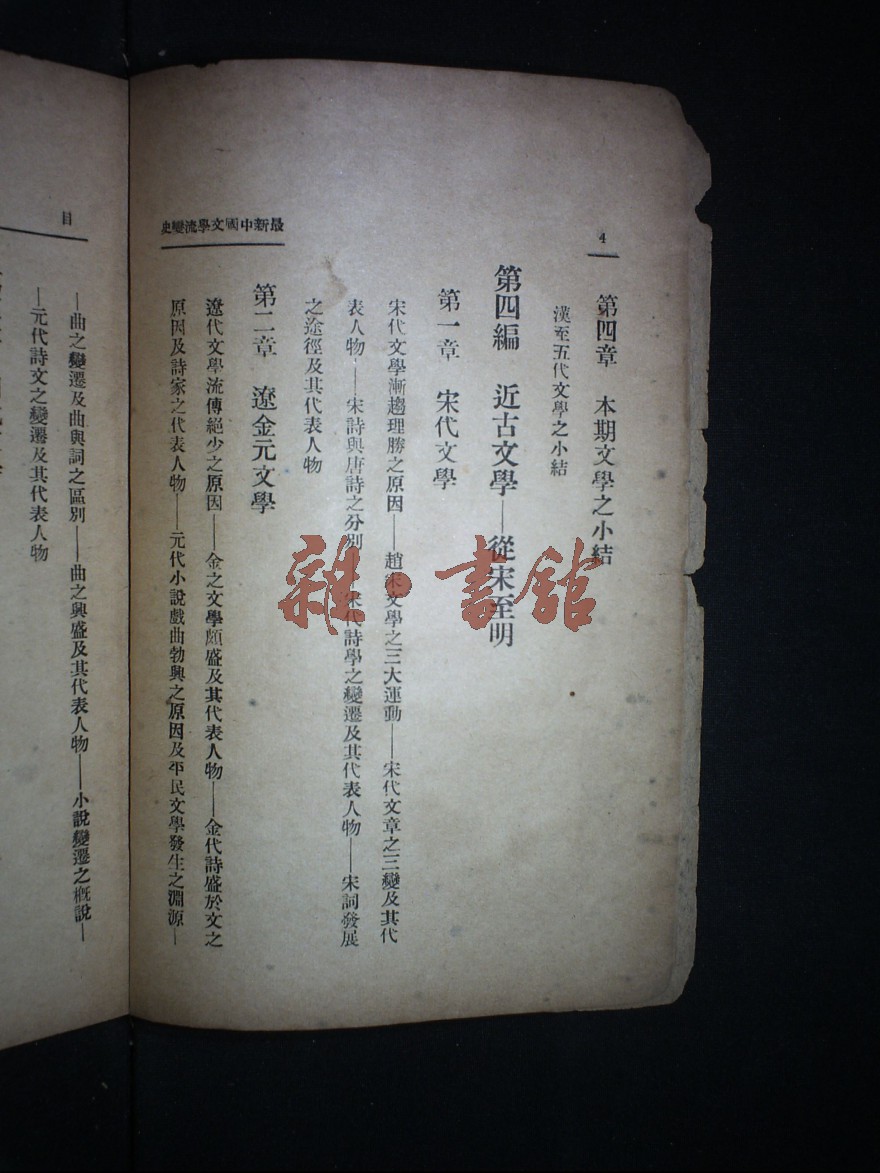 最新中國文學流變史
4
第四章　本期文學之小結
漢至五代文學之小結
第四編　近古文學——從宋至明
第一章　宋代文學
宋代文學漸趨理勝之原因——趙宋文學之三大運動——宋代文章之三變及其代
表人物——宋詩與唐詩之分別——宋代詩學之變遷及其代表人物——宋詞發展
之途徑及其代表人物
第二章　遼金元文學
遼代文學流傳絕少之原因——金之文學頗盛及其代表人物——金代詩盛於文之
原因及詩家之代表人物——元代小說戲曲勃興之原因及平民文學發生之淵源—
目
—曲之變遷及曲與詞之區別——曲之興盛及其代表人物——小說變遷之概說—
—元代詩文之變遷及其代表人物
雜·書館